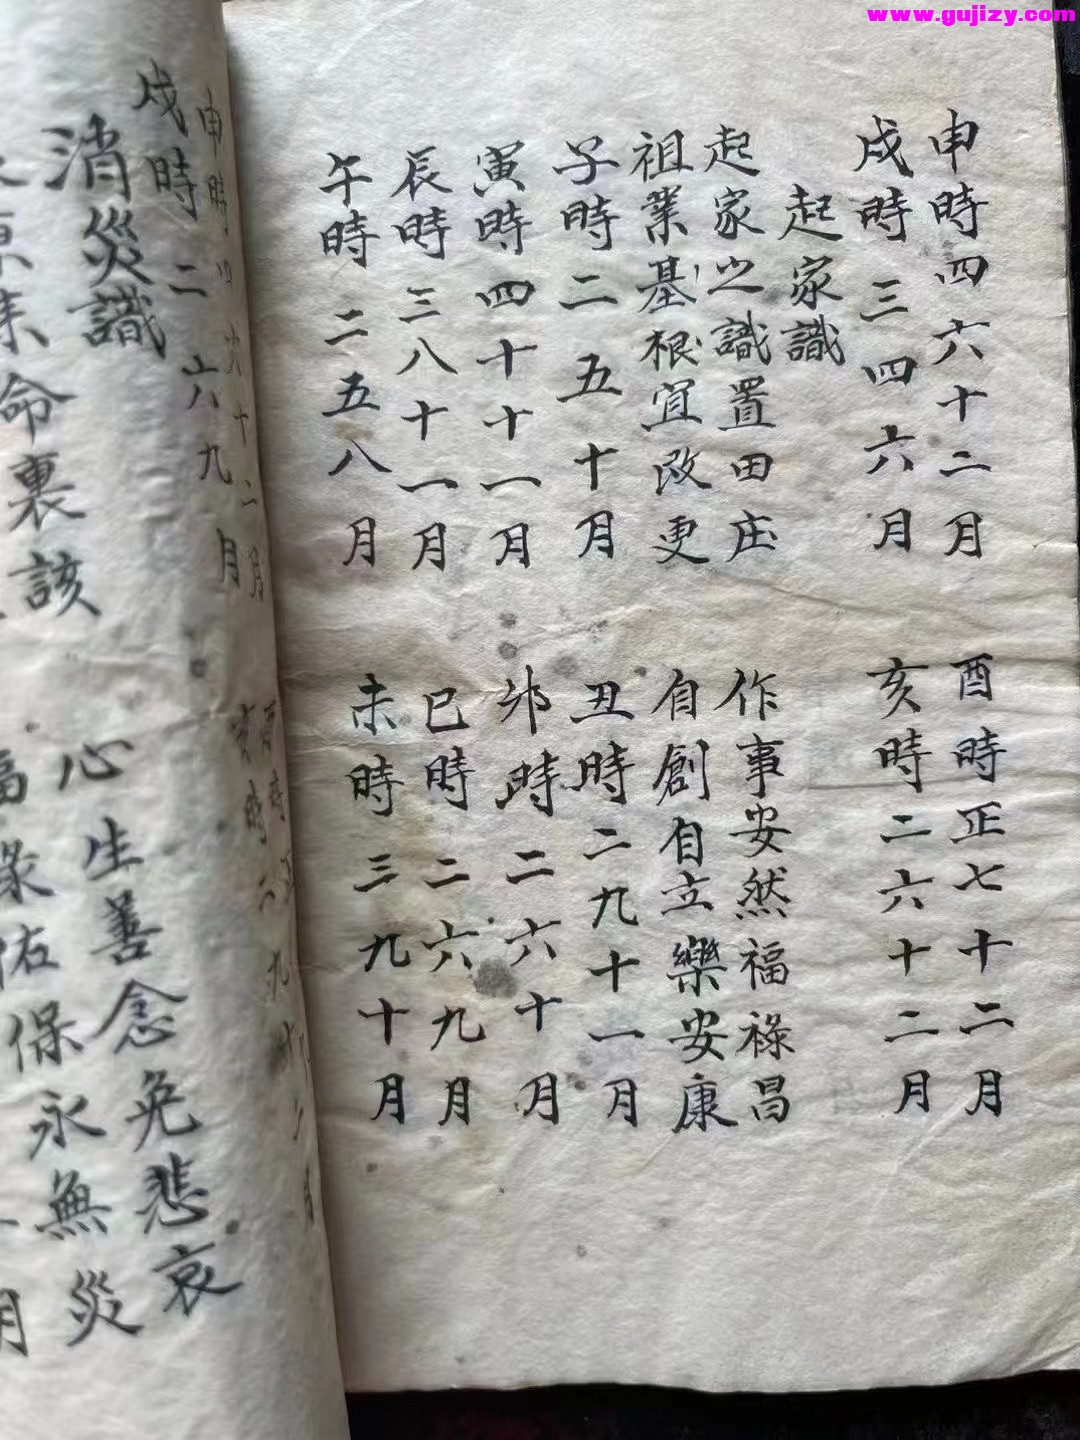 www.gujizy.com
申時四六十二月
酉時正七十二月
戌時三四六月
亥時二六十二月
起家識
起家之識置田庄
作事安然福祿昌
祖業基根宜改更
自創自立樂安康
子時二五十月
丑時二九十一月
寅時四十十一月
卯時二六十月
辰時三八十一月
巳時二六九月
午時二五八月
未時三九十月
申時四六十二月
戌時二六九月
消災識
心生善念免悲哀
命裏該
保永無災
月